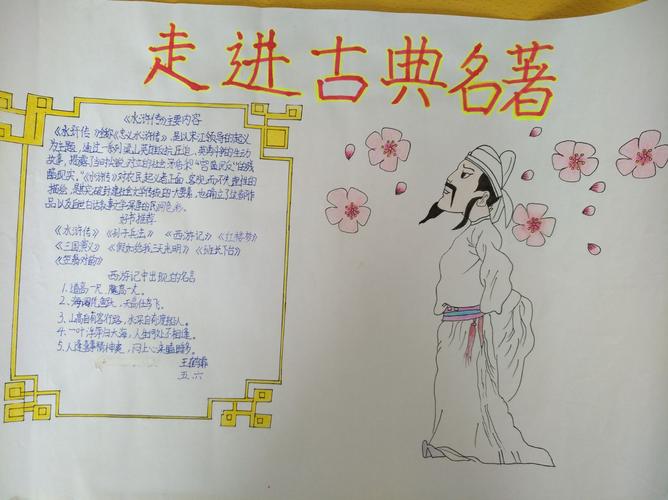 走进古典名著
《水浒传》主要内容
《水浒传》又称《忠义水浒传》,是以宋江领导的起义
为主题,通过一系列梁山英雄反抗压迫、英勇斗争的生动
故事,揭露了当时
酷现实。"《水浒传》对农民起义者正面、客观,而不失
描绘,是其突破封建社会文学传统的
品以及后世白话故事文学深厚的民间色彩。
好书推荐
《水浒传》《孙子兵法》《西游记》《红楼梦》
《三国演义》《假如给我三天光明》
《笠翁对韵》
西游记中出现过的名言
1、道高一尺,魔高一丈。
2、海阔凭鱼跃,天高任鸟飞。
3、山高自有客行路,水深自有渡船人。
4、一叶浮萍归大海,人生何处不相逢。
5、人逢喜事精神爽,闷上心来瞌睡多。
五、六